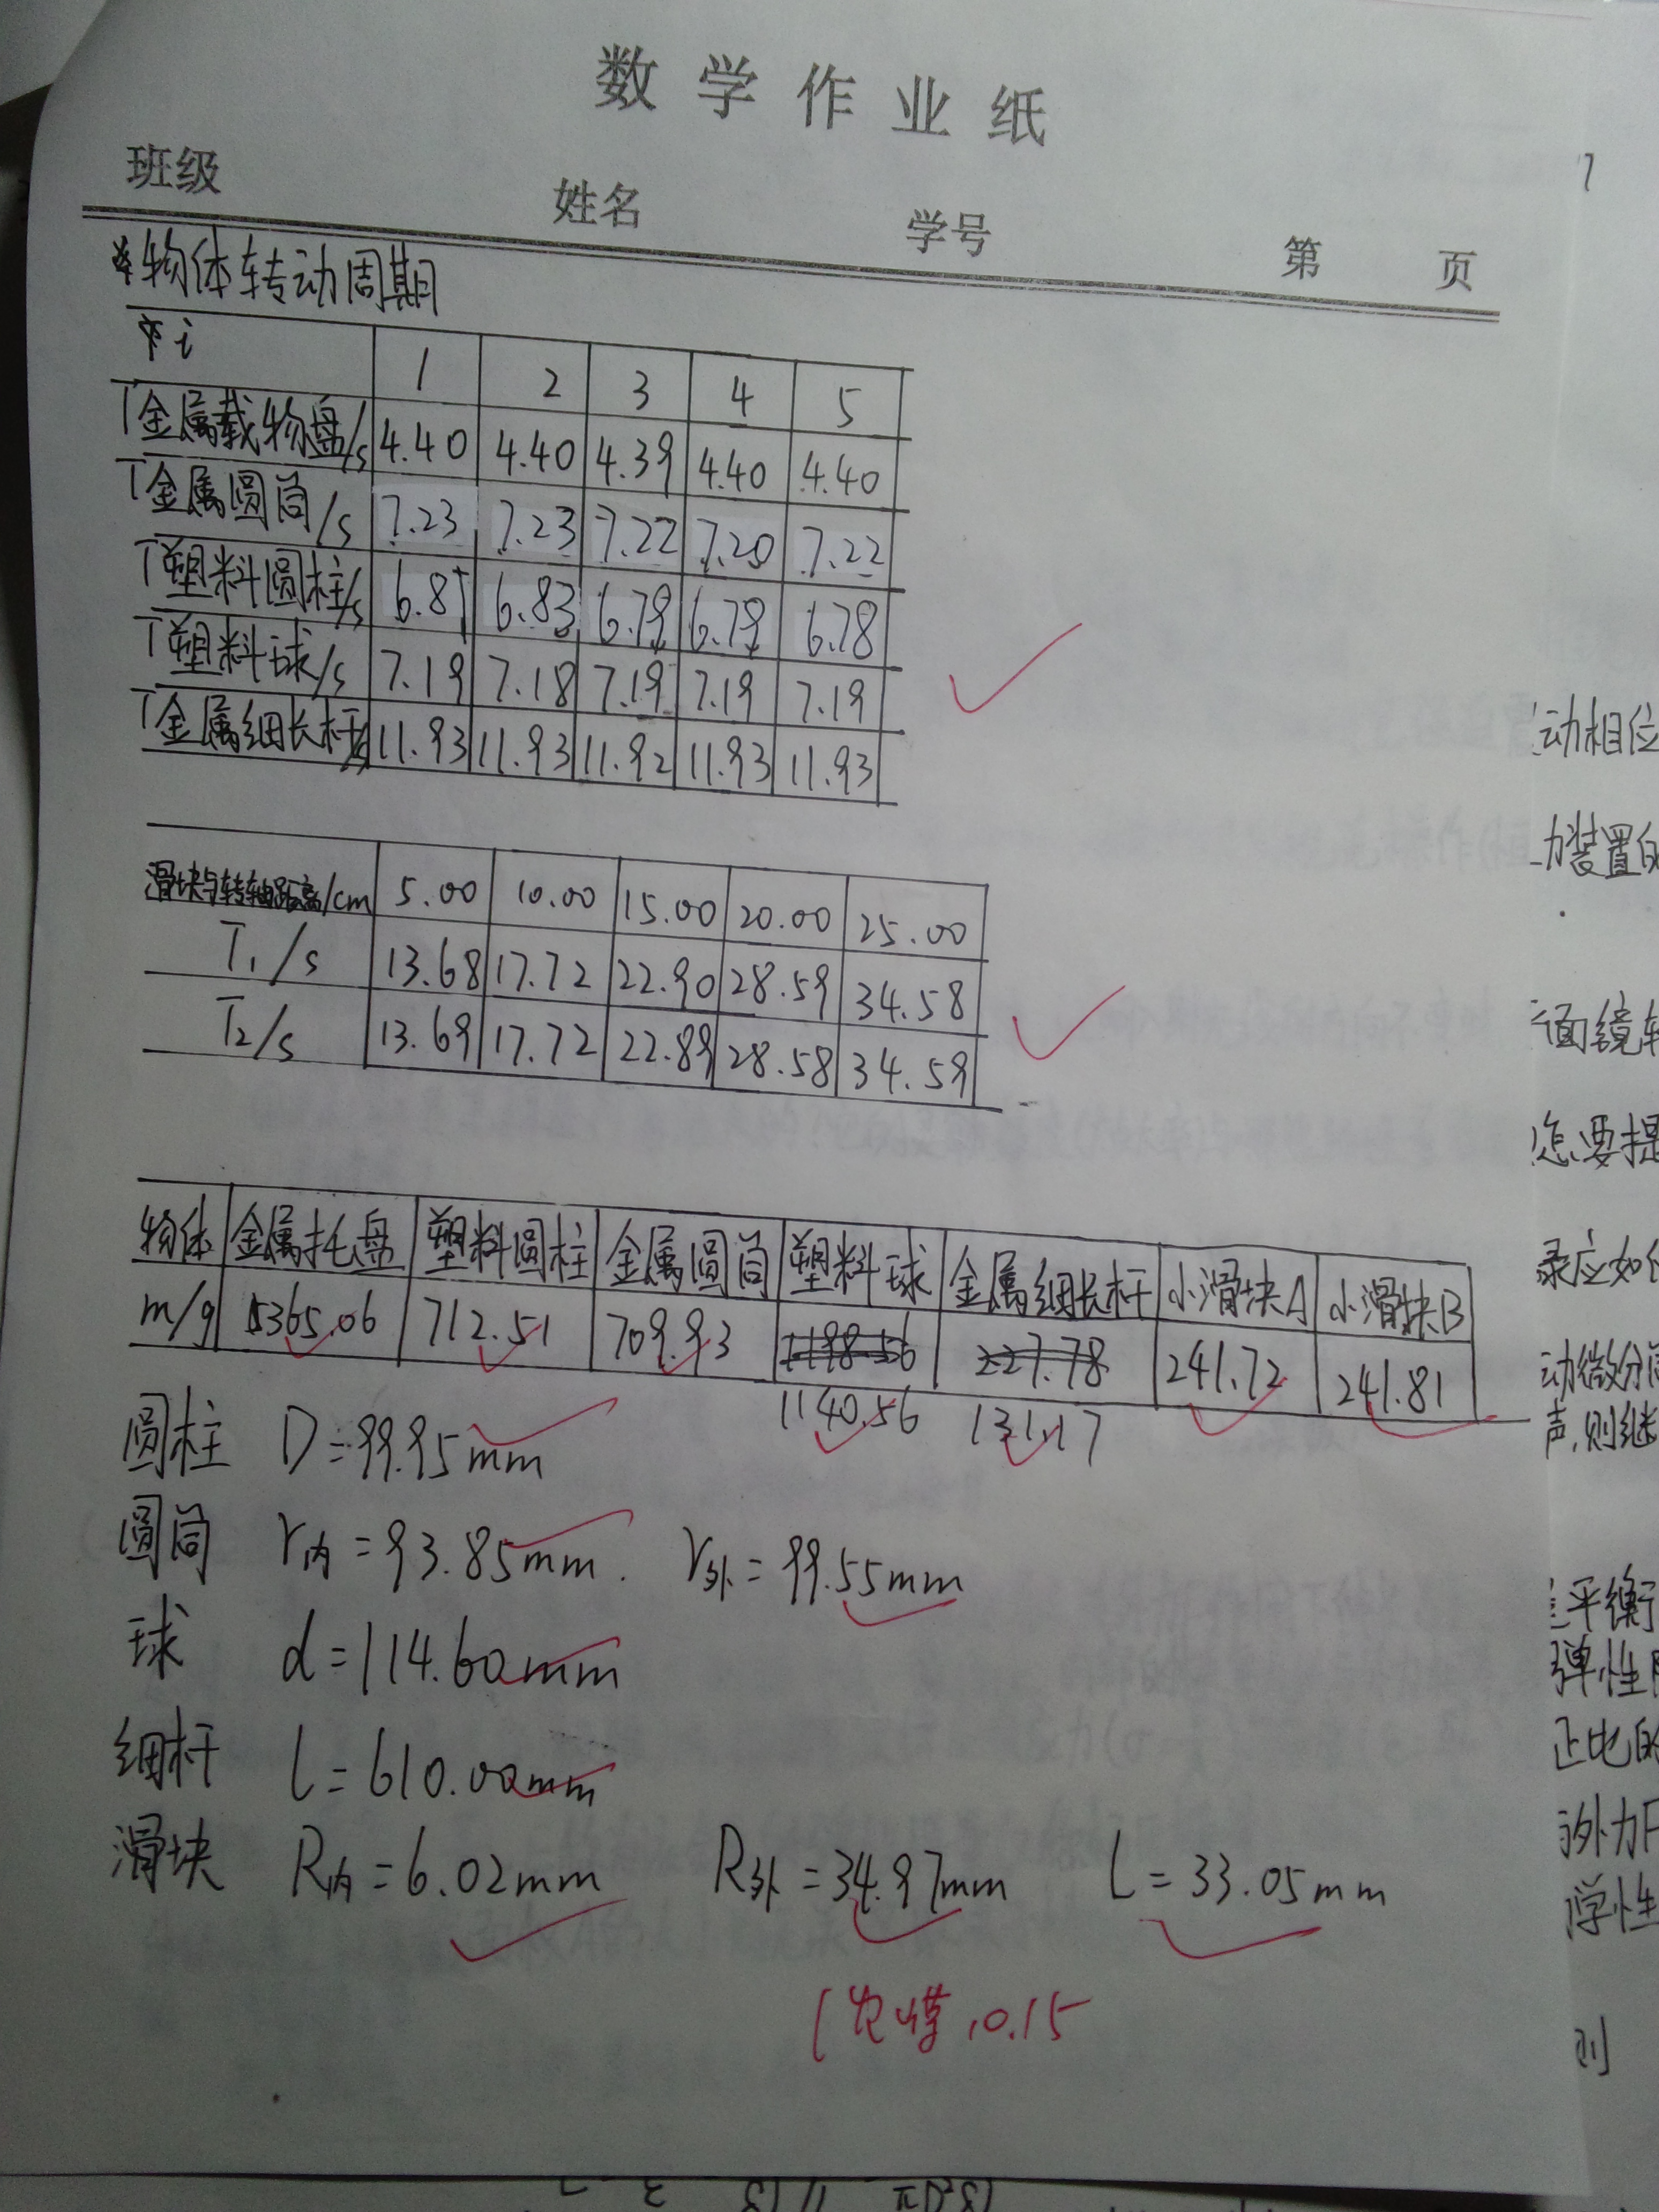 数学作业纸
班级 姓名 学号 第 页
物体转动周期
i 1 2 3 4 5
T金属载物盘/s 4.40 4.40 4.39 4.40 4.40
T金属圆筒/s 7.23 7.23 7.22 7.20 7.22
T塑料圆柱/s 6.81 6.83 6.79 6.79 6.78
T塑料球/s 7.19 7.18 7.19 7.19 7.19
T金属细长杆/s 11.93 11.93 11.92 11.93 11.93
滑块与转轴距离/cm 5.00 10.00 15.00 20.00 25.00
T₁/s 13.68 17.72 22.90 28.59 34.58
T₂/s 13.69 17.72 22.89 28.58 34.59
物体 金属托盘 塑料圆柱 金属圆筒 塑料球 金属细长杆 小滑块A 小滑块B
m/g 365.06 712.51 709.93 241.72 241.81
1140.56 131.17
圆柱 D=99.95mm
圆筒 r内=93.85mm. r外=99.55mm
球 d=114.60mm
细杆 l=610.00mm
滑块 R内=6.02mm R外=34.97mm L=33.05mm
10.15
动相位
力装置的
面镜转
您要提
录应如何
动微分
声,则继
平衡
弹性
正比的
外力F
学性
则